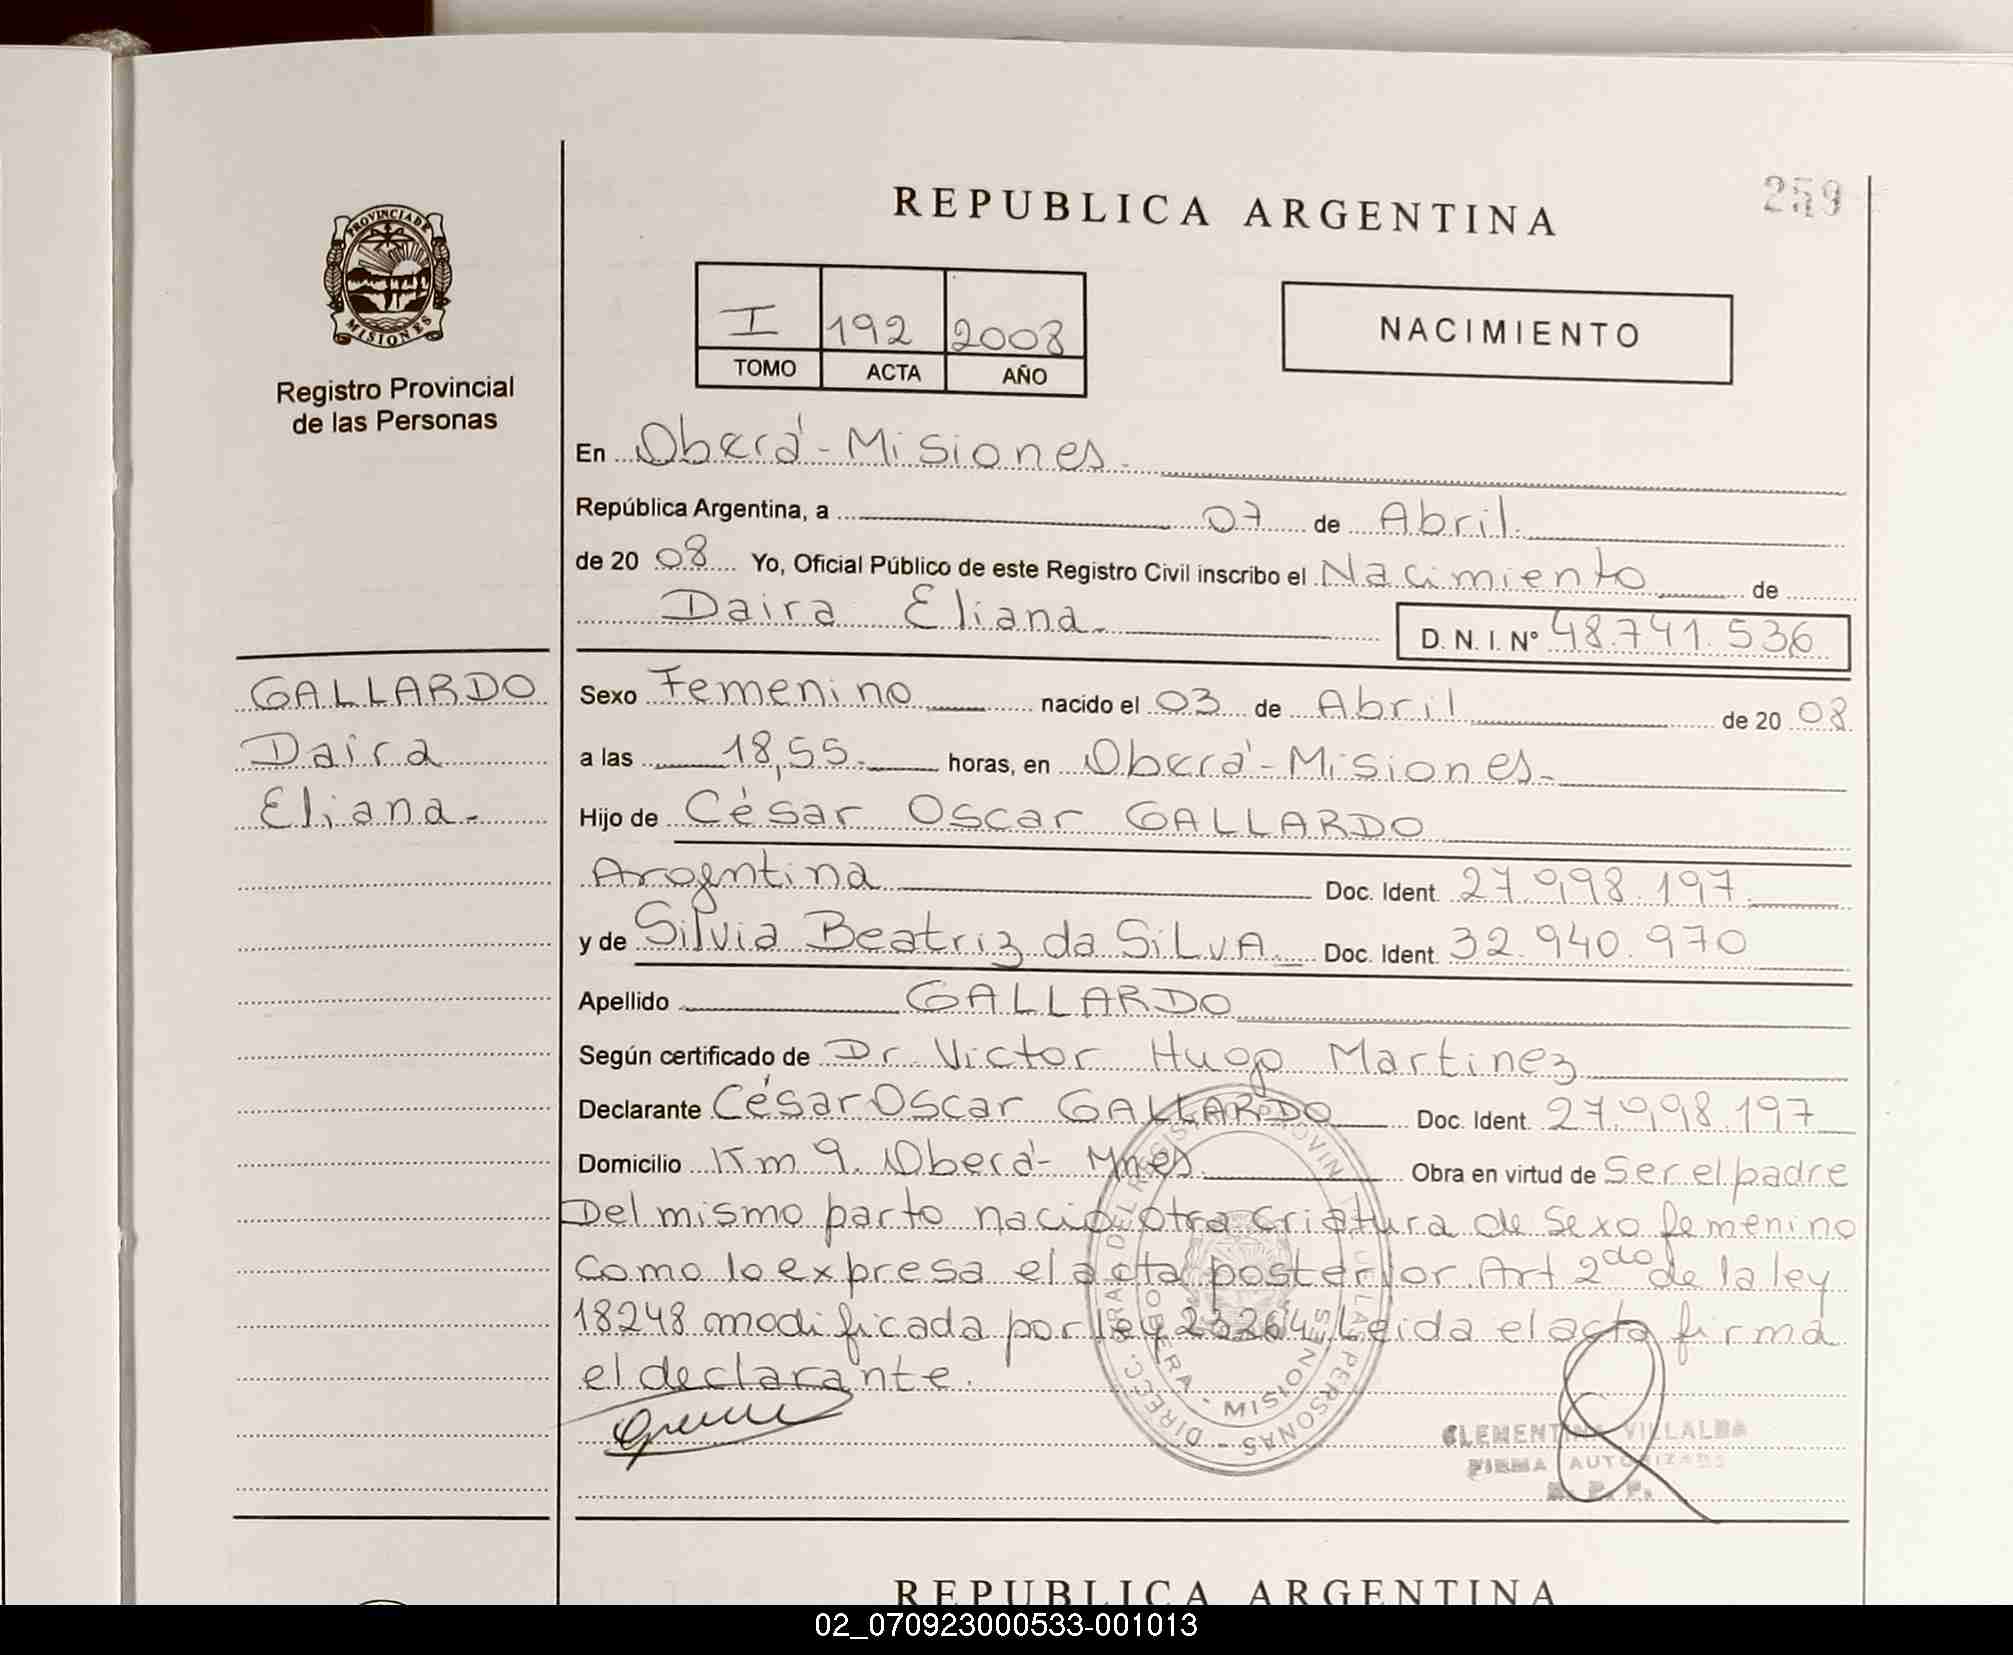 REPUBLICA ARGENTINA
259
PROVINCIA DE
MISIONES
Registro Provincial
de las Personas
I 192 2008
TOMO ACTA AÑO
NACIMIENTO
En Oberá - Misiones.
República Argentina, a 07 de Abril.
de 20 08 Yo, Oficial Público de este Registro Civil inscribo el Nacimiento de
Daira Eliana.
D. N. I. N° 48.741.536
GALLARDO
Daira
Eliana.
Sexo Femenino nacido el 03 de Abril de 20 08
a las 18,55. horas, en Oberá - Misiones.
Hijo de César Oscar GALLARDO
Argentina Doc. Ident. 27.998.197.
y de Silvia Beatriz da SiLVA. Doc. Ident. 32.940.970
Apellido GALLARDO
Según certificado de Dr. Victor Hugo Martinez
Declarante César Oscar GALLARDO Doc. Ident. 27.998.197
Domicilio Km 9. Oberá - Mnes. Obra en virtud de Ser el padre
Del mismo parto nació otra criatura de sexo femenino
Como lo expresa el acta posterior Art 2do de la ley
18248 modificada por ley 23264. Leida el acta firma
el declarante.
DIREC. GRAL. DEL REGISTRO PROVIN. DE LAS PERSONAS -
OBERA - MISIONES
CLEMENTINA VILLALBA
FIRMA AUTORIZADA
R. P. P.
REPUBLICA ARGENTINA
02_070923000533-001013